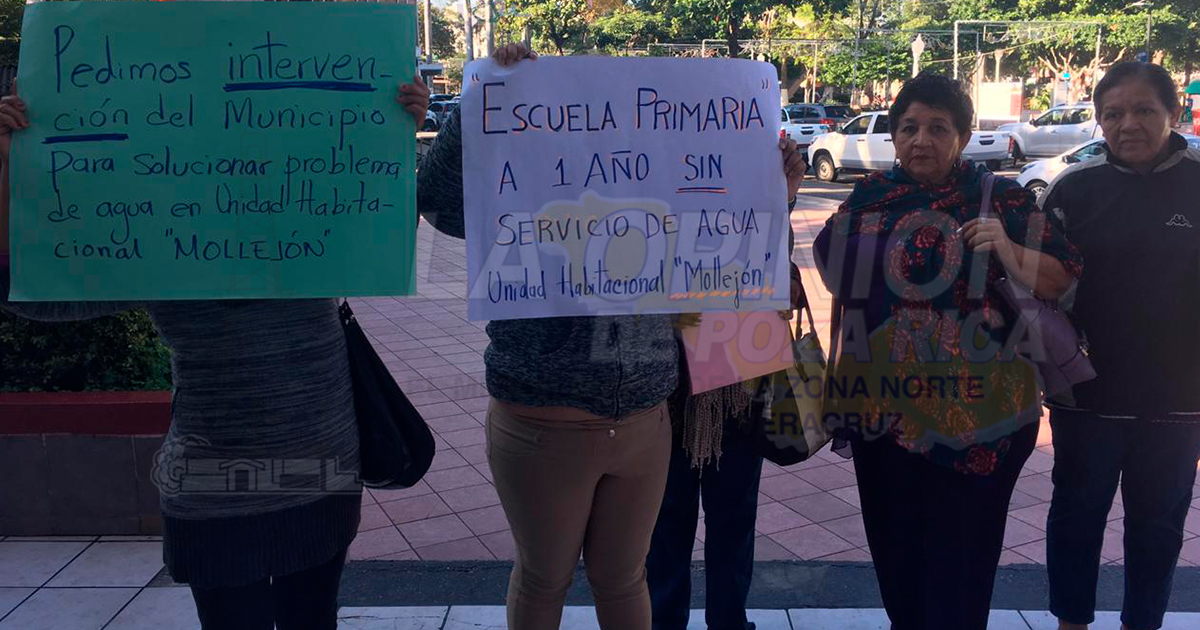 Pedimos interven-
ción del Municipio
para solucionar problema
de agua en Unidad Habita-
cional "MOLLEJÓN"
"ESCUELA PRIMARIA"
A 1 AÑO SIN
SERVICIO DE AGUA
Unidad Habitacional "Mollejón"
LA OPINIÓN
DE POZA RICA
ZONA NORTE